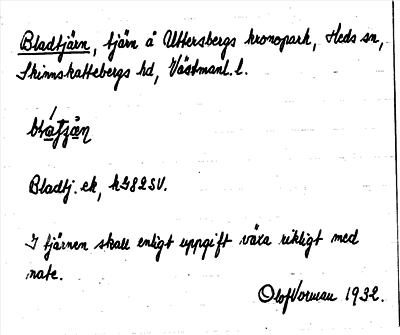 Bladtjärn, tjärn å Uttersbergs kronopark, Heds sn,
Skinnskattebergs hd, Västmanl. l.
Bladtj. ek, kg82SV.
I tjärnen skall enligt uppgift växa rikligt med
nate.
Olof Vorman 1932.